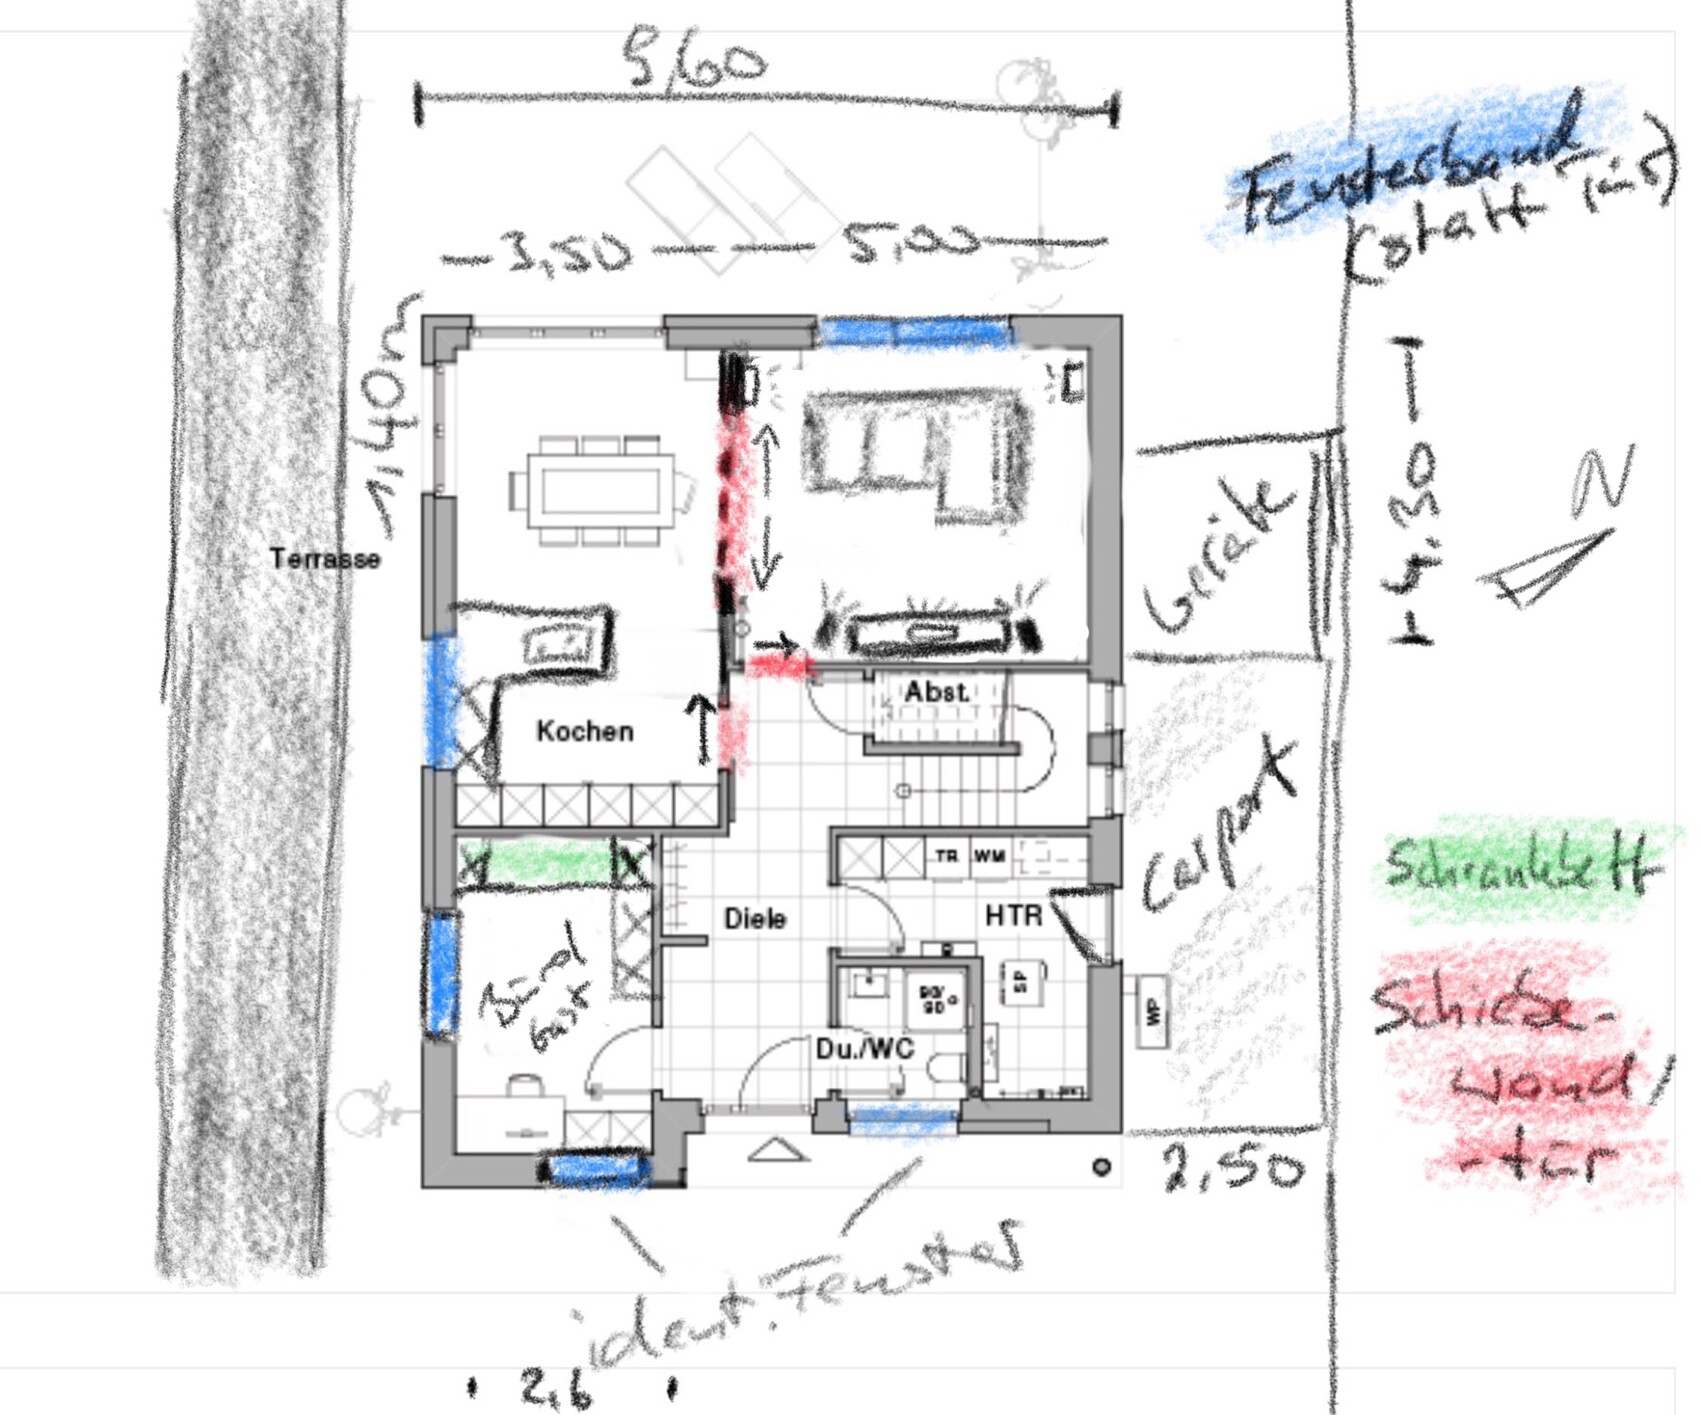 9,60
Fensterband
(statt Tür)
3,50
5,00
1,40m
4,30
N
Geräte
Terrasse
Abst.
Kochen
Carport
Schrankbett
TR
WM
Diele
HTR
Büro/
Gast
SP
90/
90
WP
Schiebe-
wand/
-tür
Du./WC
2,50
ident. Fenster
2,6